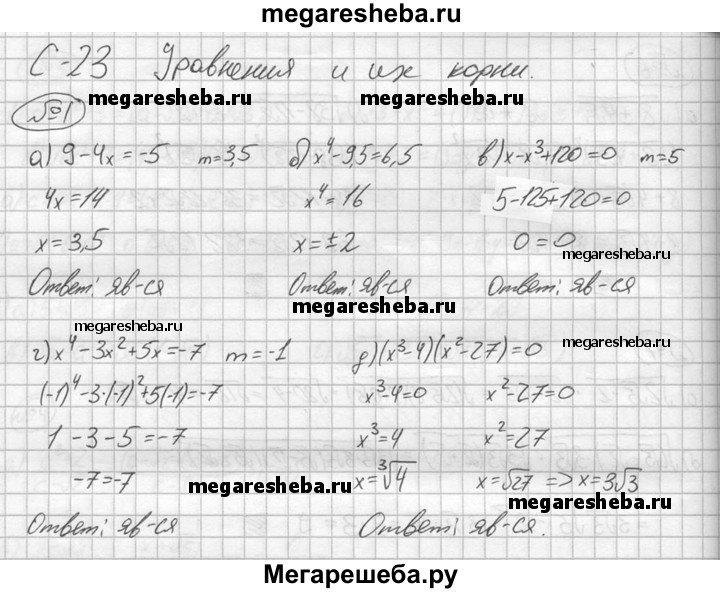 megaresheba.ru
С-23 Уравнения и их корни.
№1
megaresheba.ru megaresheba.ru
а) 9-4x=-5 m=3,5 б) x⁴-9,5=6,5 в) x-x³+120=0 m=5
4x=14 x⁴=16 5-125+120=0
x=3,5 x=±2 0=0
megaresheba.ru
Ответ: яв-ся Ответ: яв-ся Ответ: яв-ся
megaresheba.ru
megaresheba.ru
г) x⁴-3x²+5x=-7 m=-1 д) (x³-4)(x²-27)=0
(-1)⁴-3·(-1)²+5(-1)=-7 x³-4=0 x²-27=0
1-3-5=-7 x³=4 x²=27
-7=-7 x=∛4 x=√27 => x=3√3
megaresheba.ru
megaresheba.ru
Ответ: яв-ся Ответ: яв-ся.
Мегарешеба.ру